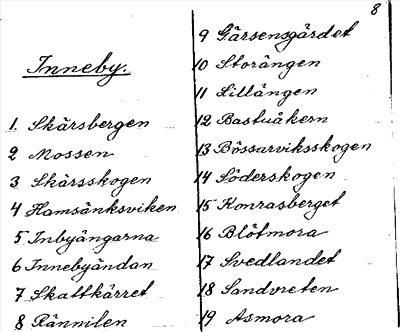 8
Inneby.
1. Skärsbergen
2 Mossen
3 Skärsskogen
4 Hamsänksviken
5 Inbyängarna
6 Innebyändan
7 Skattkärret
8 Rännilen
9 Gärsensgärdet
10 Storängen
11 Lillängen
12 Bastuåkern
13 Bössarviksskogen
14 Söderskogen
15 Konrasberget
16 Blötmora
17 Svedlandet
18 Sandvreten
19 Asmora